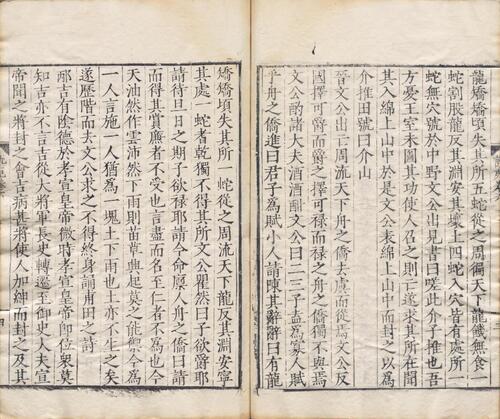 龍矯矯頃失其所五蛇從之周徧天下龍饑無食一
蛇割股龍反其淵安其壤土四蛇入穴皆有處所一
蛇無穴號於中野文公出見書曰嗟此介子推也吾
方憂王室未圖其功使人召之則亡遂求其所在聞
其入綿上山中於是文公表綿上山中而封之以為
介推田號曰介山
晉文公出亡周流天下舟之僑去虞而從焉文公反
國擇可爵而爵之擇可祿而祿之舟之僑獨不與焉
文公酌諸大夫酒酒酣文公曰二三子盍為寡人賦
乎舟之僑進曰君子為賦小人請陳其辭辭曰有龍
矯矯頃失其所一蛇從之周流天下龍反其淵安寧
其處一蛇耆乾獨不得其所文公瞿然曰子欲爵耶
請待旦日之期子欲祿耶請今命廩人舟之僑曰請
而得其賞廉者不受也言盡而名至仁者不為也今
天油然作雲沛然下雨則苗草興起莫之能禦今為
一人言施一人猶為一塊土下雨也土亦不生之矣
遂歷階而去文公求之不得終身誦甫田之詩
邴吉有陰德於孝宣皇帝微時孝宣皇帝即位衆莫
知吉亦不言吉從大將軍長史轉遷至御史大夫宣
帝聞之將封之會吉病甚將使人加紳而封之及其